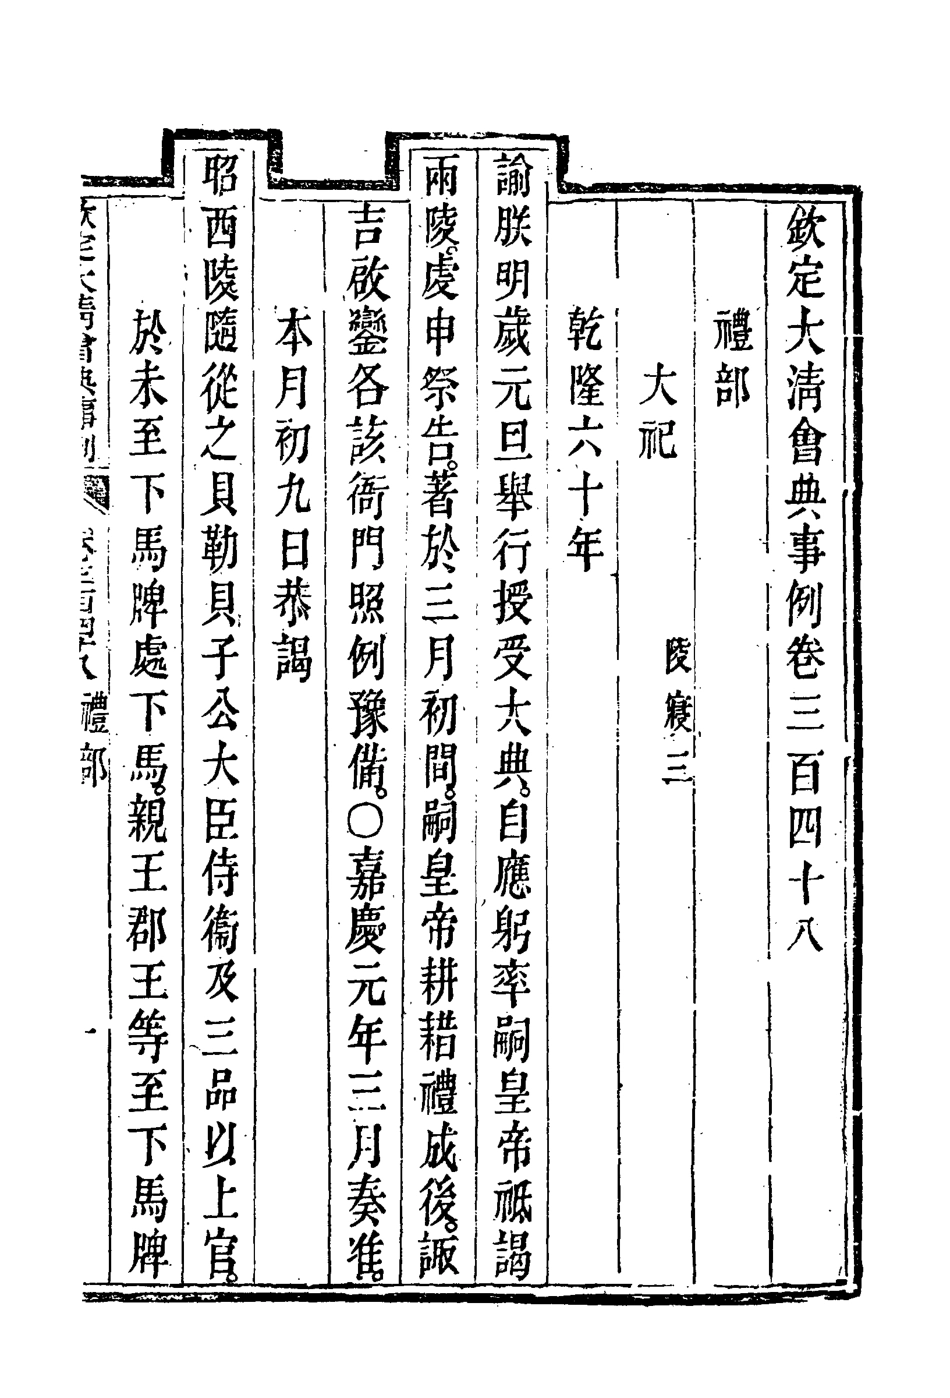 欽定大清會典事例卷三百四十八
禮部
大祀
陵寢三
乾隆六十年
諭朕明歲元旦舉行授受大典。自應躬率嗣皇帝祗謁
兩陵。虔申祭告。著於三月初間。嗣皇帝耕耤禮成後。諏
吉啟鑾各該衙門照例豫備。○嘉慶元年三月奏准。
本月初九日恭謁
昭西陵隨從之貝勒貝子公大臣侍衞及三品以上官。
於未至下馬牌處下馬。親王郡王等至下馬牌
欽定大清會典事例 卷三百四十八 禮部 一